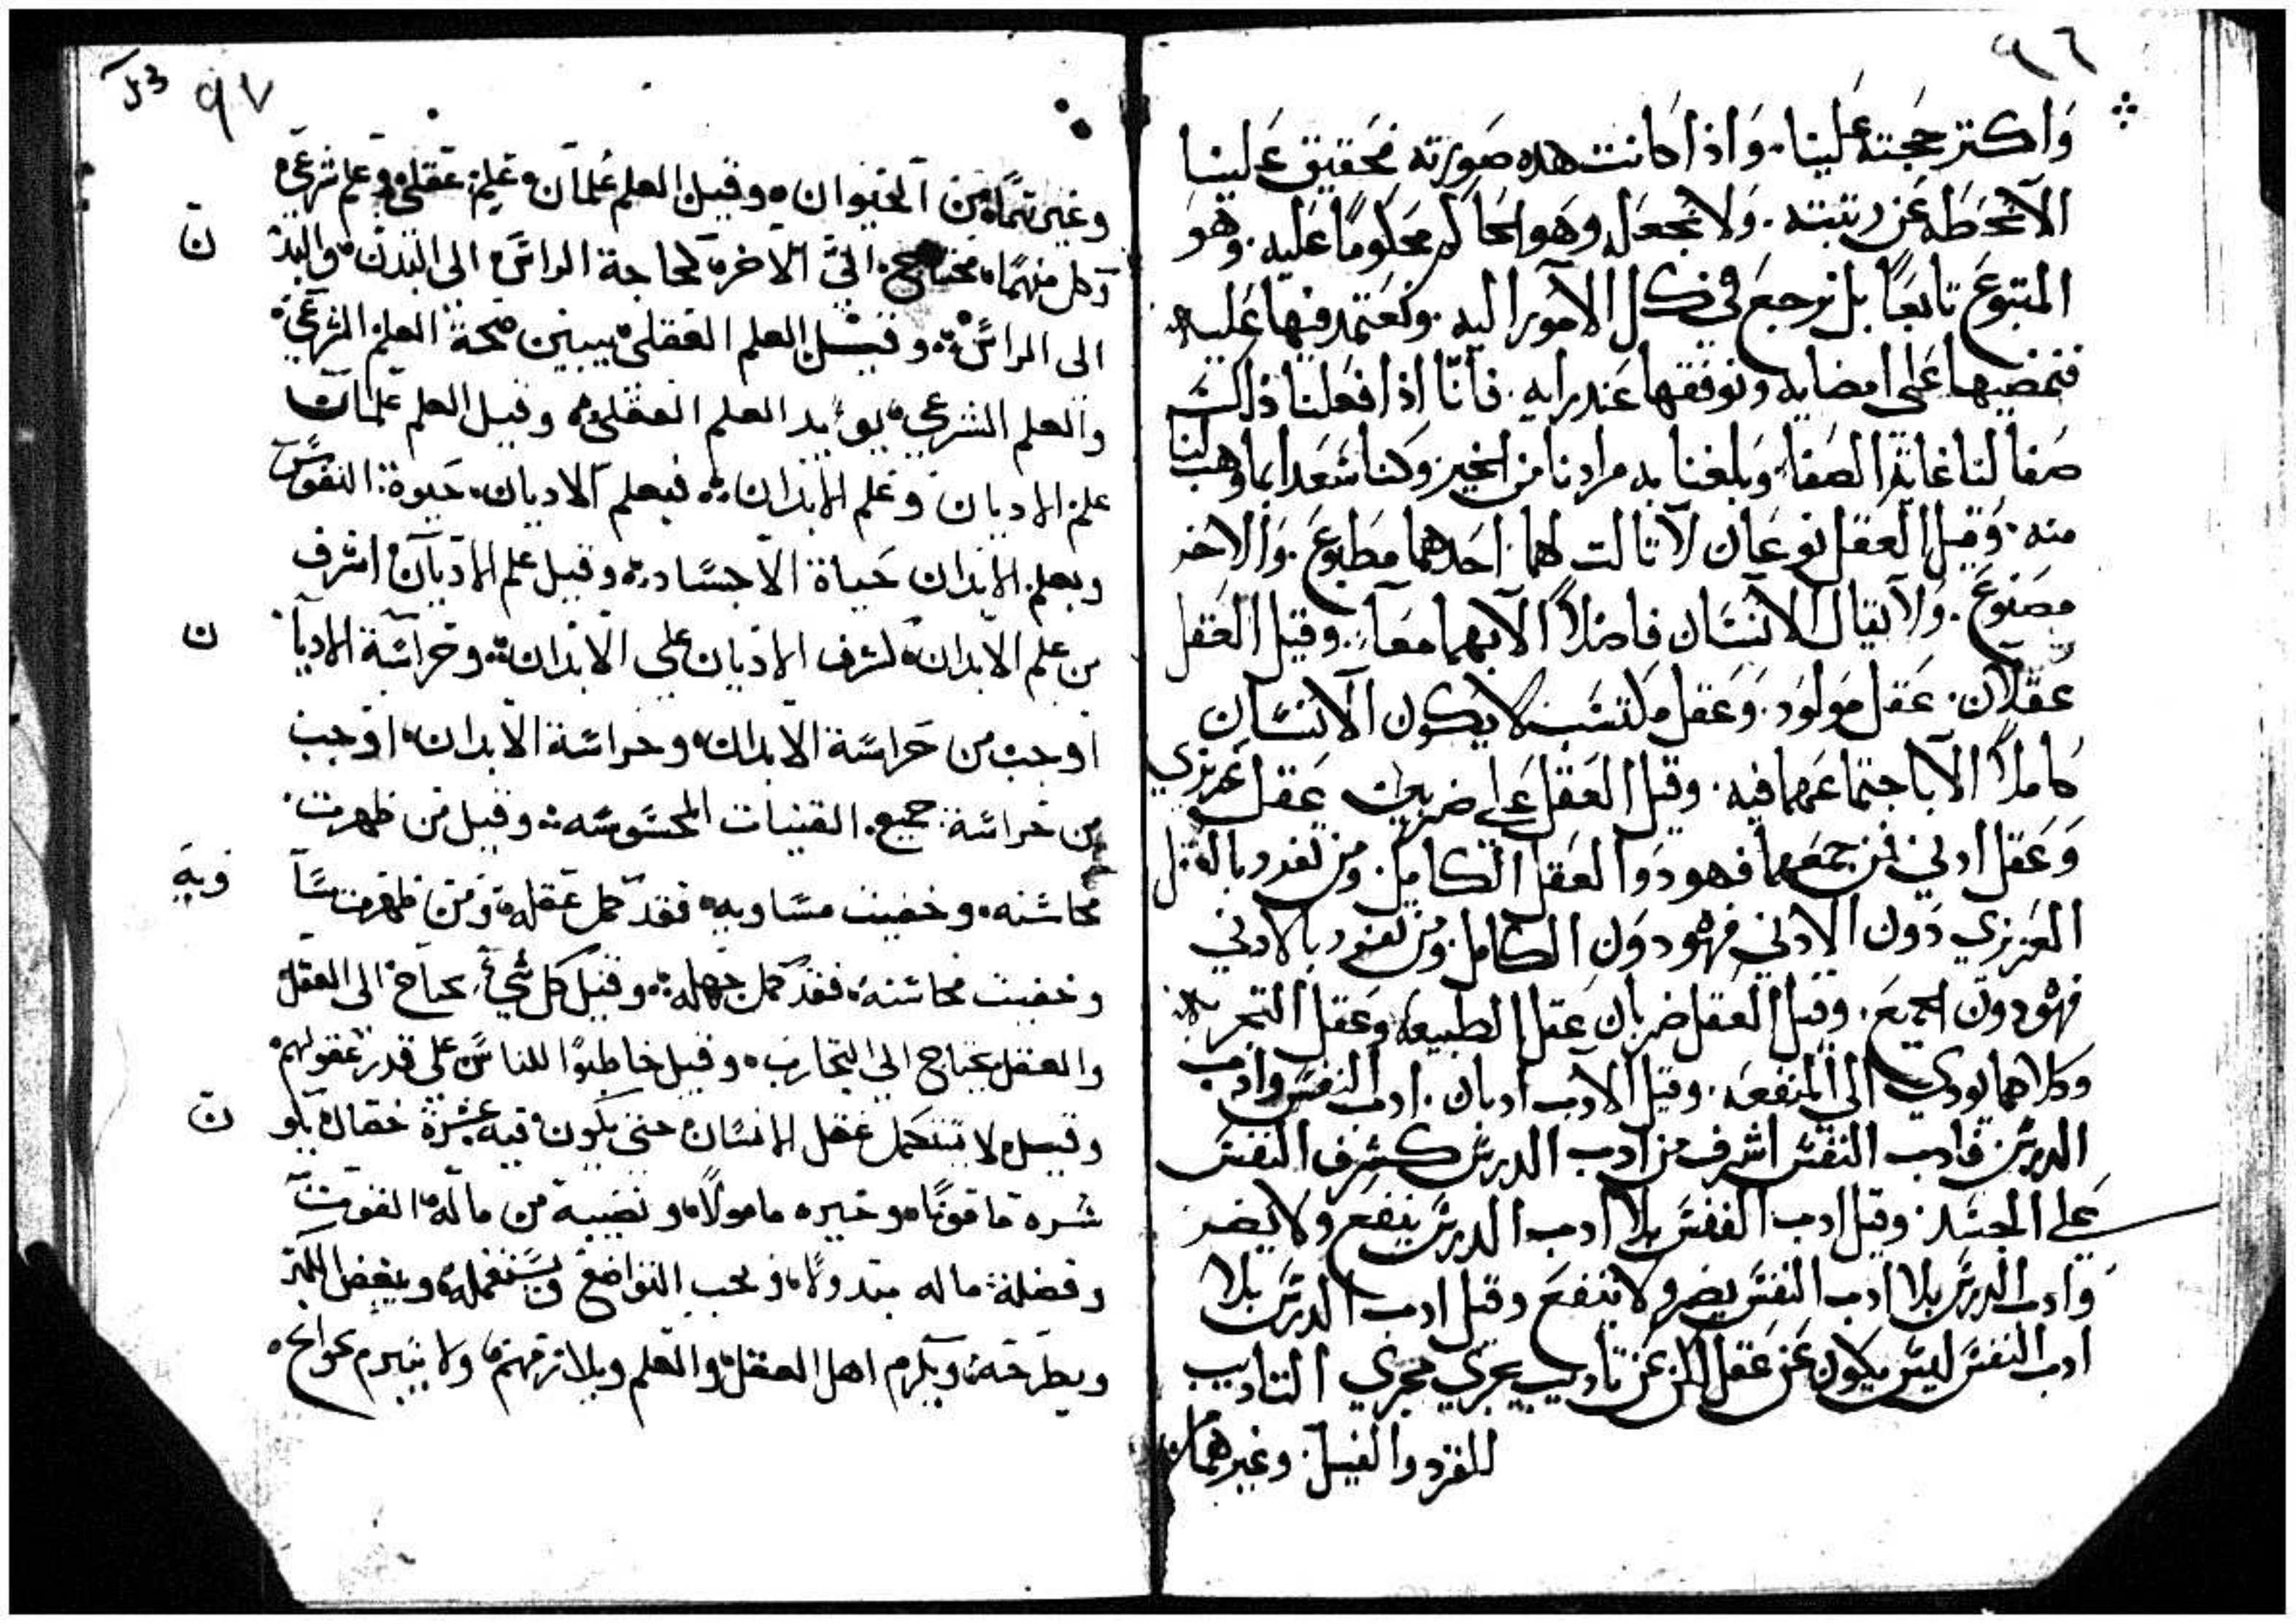 ٩٦
وَاكتر حجته علينا. وَاذا كانت هده صورته فحقيق علينا
الا نحطه عن رتبته. ولا نجعله وهو الحاكم محكومًا عليه. وهو
المتبوع تابعًا بل نرجع في كل الامور اليه. ونعتمد فيها عليه
فنمضيها على امضايه ونوقفها عند رايه. فانّا اذا فعلنا ذلك
صفا لنا غاية الصفا. وبلغنا به مرادنا من الخير وكنا سعدا بما وهب لنا
منه. وقيل العقل نوعان لا ثالت لهما. احدهما مطبوع. والاخر
مصنوع. ولا يقال للانسان فاضلاً الا بهما معاً. وقيل العقل
عقلان. عقل مولود. وعقل مكتسب لا يكون الانسان
كاملاً الا باجتماعهما فيه. وقيل العقل على ضربين عقل غريزي
وعقل ادبي فمن جمعهما فهو دوا العقل الكامل. ومن تفرد بالعقل
الغريزي دون الادبي فهو دون الكامل. ومن تفرد بالادبي
فهو دون الجميع. وقيل العقل ضربان عقل الطبيعه وعقل التجربه
وكلاهما يودي الى المنفعه. وقيل الادب ادبان. ادب النفس وادب
الدرس فادب النفس اشرف من ادب الدرس كشرف النفس
على الجسد. وقيل ادب النفس بلا ادب الدرس ينفع ولا يضر
وادب الدرس بلا ادب النفس يضر ولا ينفع وقيل ادب الدرس بلا
ادب النفس ليس يكون عن عقل لكن عن تاديب يجري مجري التاديب
للقرد والفيل. وغيرهما
٩٧
وغيرهما من الحيوان وقيل العلم علمان علم عقلي وعلم شرعي
وكل منهما محتاج الى الاخر كحاجة الراس الى البدن والبدن
الى الراس وقيل العلم العقلي يبين صحة العلم الشرعي
والعلم الشرعي يوئيد العلم العقلي وقيل العلم علمان
علم الاديان وعلم الابدان فبعلم الاديان حيوة النفوس
وبعلم الابدان حياة الاجساد وقيل علم الاديان اشرف
من علم الابدان لشرف الاديان على الابدان وحراسة الاديان
اوجب من حراسة الابدان وحراسة الابدان اوجب
من حراسة جميع القنيات المحسوسه وقيل من ظهرت
محاسنه وخفيت مساويه فقد كمل عقله ومن ظهرت مساويه
وخفيت محاسنه فقد كمل جهله وقيل كل شيء يحتاج الى العقل
والعقل يحتاج الى التجارب وقيل خاطبوا للناس على قدر عقولهم
وقيل لا يتكمل عقل الانسان حتى يكون فيه عشرة خصال يكون
شره مامونًا وخيره مامولاً ونصيبه من ماله القوت
وفضلة ماله مبذولاً ويحب التواضع ويستعمله ويبغض الكبر
ويطرحه ويكرم اهل العقل والعلم ويلازمهم ولا يتبرم بحوايج